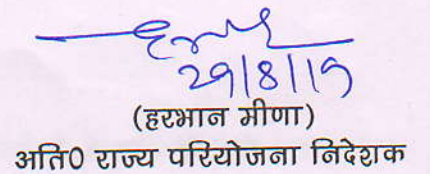 29/8/19
(हरभान मीणा)
अति0 राज्य परियोजना निदेशक